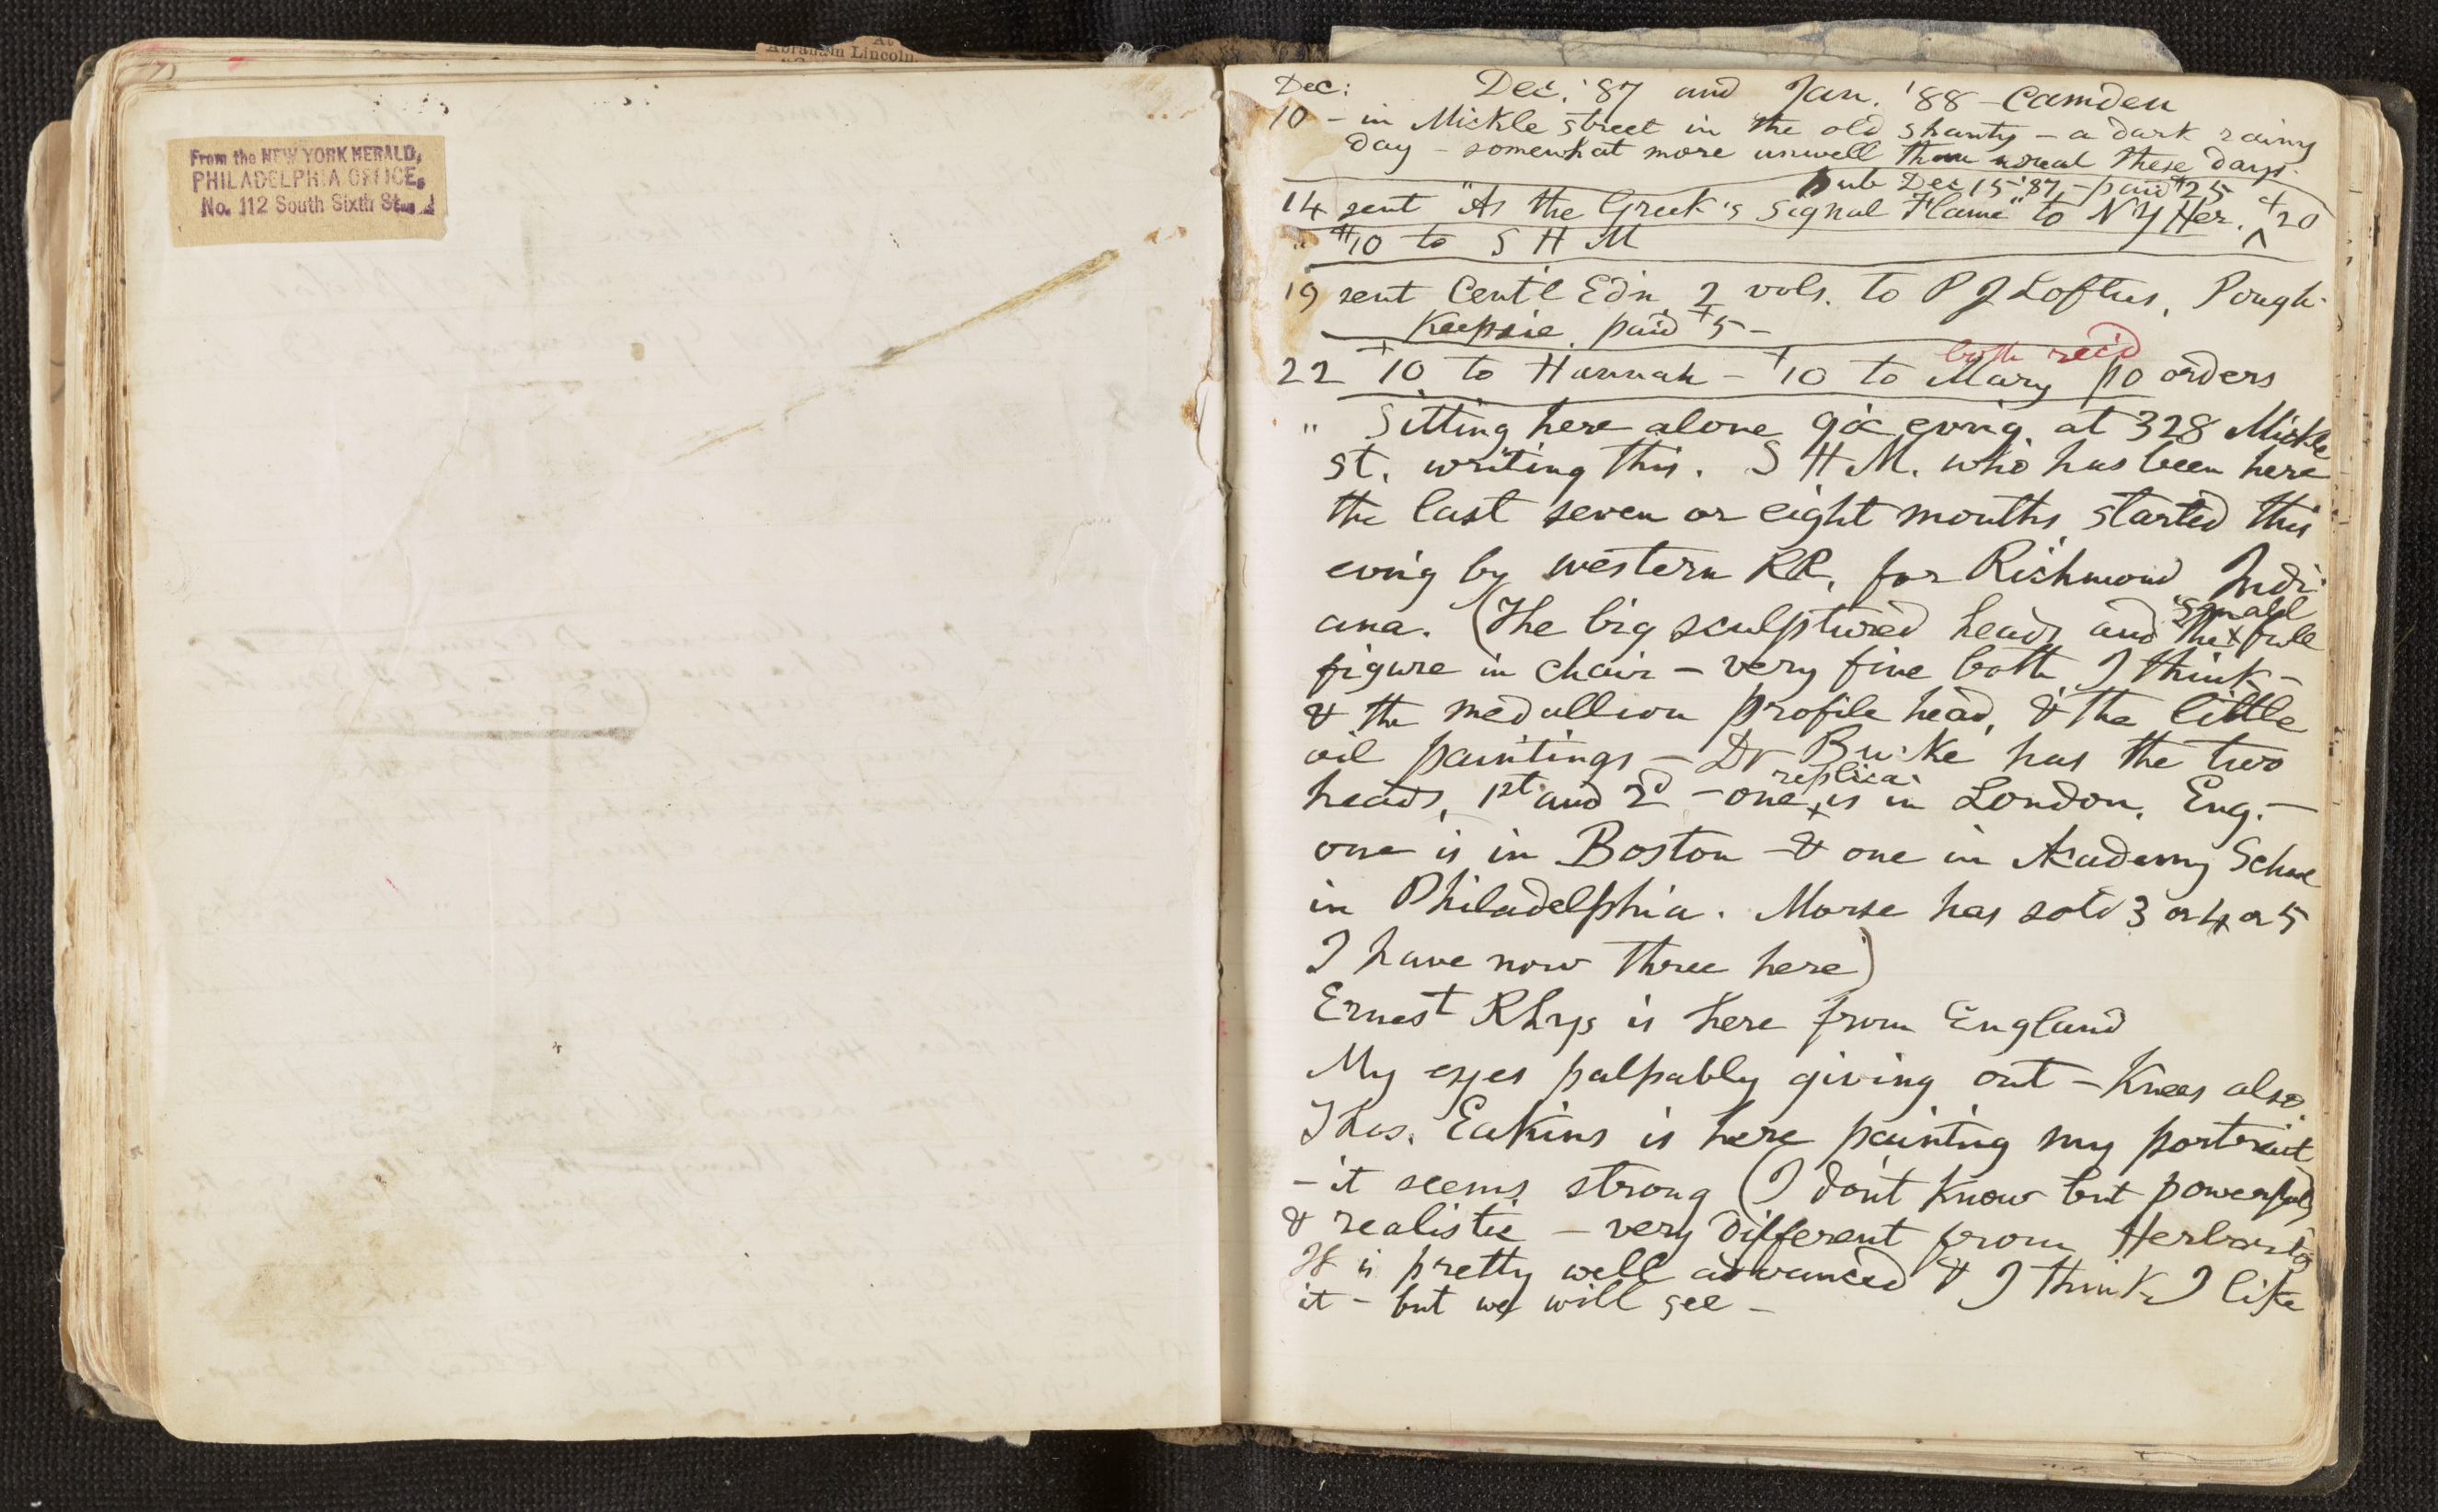 At
Abraham Lincoln
From the NEW YORK HERALD,
PHILADELPHIA OFFICE,
No. 112 South Sixth
Dec: Dec. '87 and Jan. '88 – Camden
10 – in Mickle street in the old shanty – a dark rainy
day – somewhat more unwell than usual these days.
pub Dec 15 '87, – paid $25
14 sent "As the Greek's Signal Flame" to N Y Her. $20
" $10 to S H M
19 sent Cent'l Ed'n 2 vols. to P J Loftus, Pough-
keepsie. paid $5 –
both rec'd
22 $10 to Hannah – $10 to Mary p o orders
" Sitting here alone 9 o'c ev'ng. at 328 Mickle
st. writing this. S H M. who has been here
the last seven or eight months, started this
ev'ng by western RR. for Richmond Indi-
small
ana. (The big sculptured head, and the full
figure in chair – very fine both I think –
& the medallion profile head, & the little
oil paintings – Dr Bucke has the two
replica
heads, 1st and 2d – one is in London, Eng. –
one is in Boston – & one in Academy School
in Philadelphia. Morse has sold 3 or 4 or 5
I have now three here)
Ernest Rhys is here from England
My eyes palpably giving out – Knees also.
Thos. Eakins is here painting my portrait
– it seems strong (I don't know but powerful)
& realistic – very different from Herbert's
It is pretty well advanced & I think I like
it – but we will see –